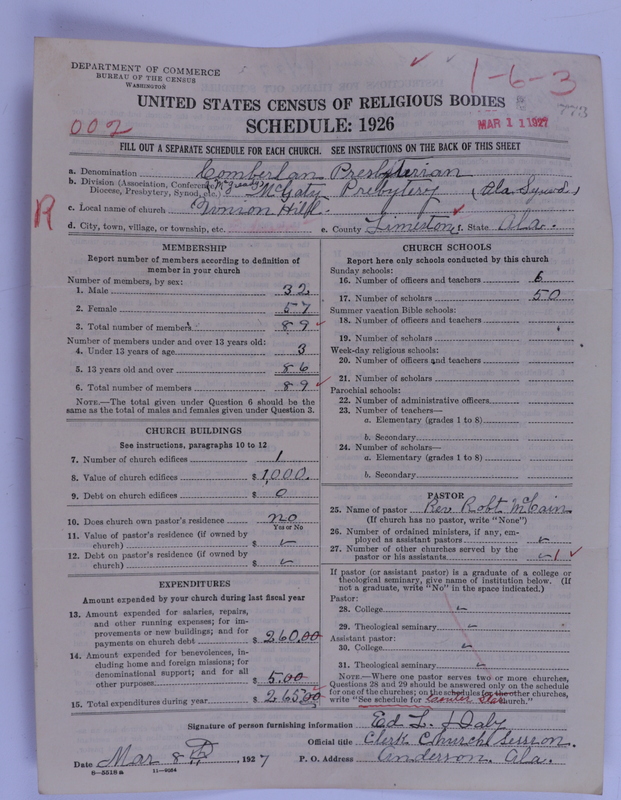 DEPARTMENT OF COMMERCE
BUREAU OF THE CENSUS
WASHINGTON
1-6-3
773
UNITED STATES CENSUS OF RELIGIOUS BODIES
002
SCHEDULE: 1926
MAR 11 1927
FILL OUT A SEPARATE SCHEDULE FOR EACH CHURCH. SEE INSTRUCTIONS ON THE BACK OF THIS SHEET
a. Denomination Comberlan Presbyterian
b. Division (Association, Conference, Diocese, Presbytery, Synod, etc.) McGaty Presbytery (Ala Synod)
R
c. Local name of church Vnion Hill
d. City, town, village, or township, etc. e. County Limeston f. State Ala.
MEMBERSHIP
Report number of members according to definition of
member in your church
Number of members, by sex:
1. Male 32
2. Female 57
3. Total number of members 89
Number of members under and over 13 years old:
4. Under 13 years of age 3
5. 13 years old and over 86
6. Total number of members 89
NOTE.—The total given under Question 6 should be the
same as the total of males and females given under Question 3.
CHURCH BUILDINGS
See instructions, paragraphs 10 to 12
7. Number of church edifices 1
8. Value of church edifices $ 1,000.
9. Debt on church edifices $ 0
10. Does church own pastor's residence no
Yes or No
11. Value of pastor's residence (if owned by
church) $
12. Debt on pastor's residence (if owned by
church) $
EXPENDITURES
Amount expended by your church during last fiscal year
13. Amount expended for salaries, repairs,
and other running expenses; for im-
provements or new buildings; and for
payments on church debt $ 260.00
14. Amount expended for benevolences, in-
cluding home and foreign missions; for
denominational support; and for all
other purposes $ 5.00
15. Total expenditures during year $ 265.00
CHURCH SCHOOLS
Report here only schools conducted by this church
Sunday schools:
16. Number of officers and teachers 6
17. Number of scholars 50
Summer vacation Bible schools:
18. Number of officers and teachers
19. Number of scholars
Week-day religious schools:
20. Number of officers and teachers
21. Number of scholars
Parochial schools:
22. Number of administrative officers
23. Number of teachers—
a. Elementary (grades 1 to 8)
b. Secondary
24. Number of scholars—
a. Elementary (grades 1 to 8)
b. Secondary
PASTOR
25. Name of pastor Rev Robt McCain
(If church has no pastor, write "None")
26. Number of ordained ministers, if any, em-
ployed as assistant pastors
27. Number of other churches served by the
pastor or his assistants 1
If pastor (or assistant pastor) is a graduate of a college or
theological seminary, give name of institution below. (If
not a graduate, write "No" in the space indicated.)
Pastor:
28. College
29. Theological seminary
Assistant pastor:
30. College
31. Theological seminary
NOTE.—Where one pastor serves two or more churches,
Questions 28 and 29 should be answered only on the schedule
for one of the churches; on the schedules for the other churches,
write "See schedule for Center Star church."
Signature of person furnishing information Ed L. Daly
Official title Clerk Church Session.
Date Mar 8th, 1927 P. O. Address Anderson. Ala.
8-5518a 11-9264